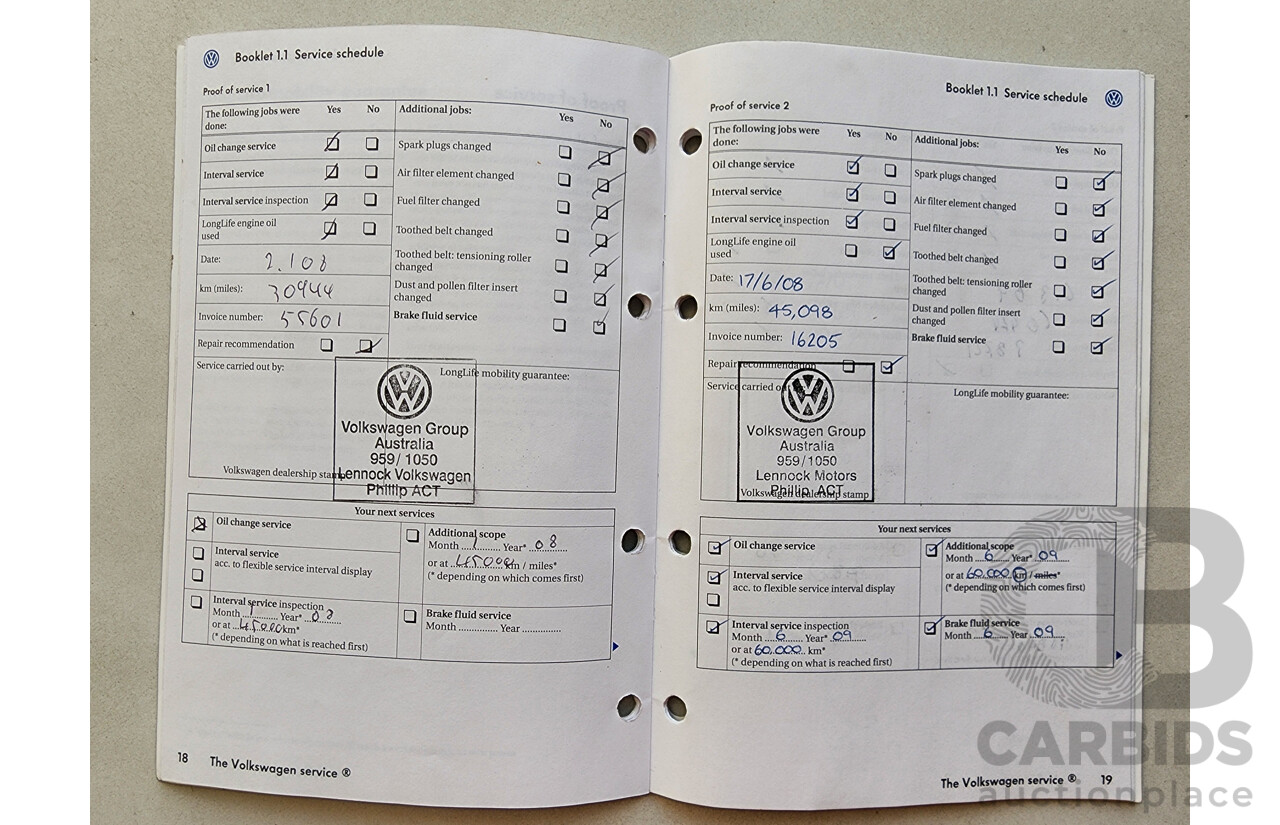 Booklet 1.1 Service schedule
Proof of service 1
The following jobs were done:
Yes No
Additional jobs:
Yes No
Oil change service
Interval service
Interval service inspection
LongLife engine oil used
Date: 2.1 08
km (miles): 30944
Invoice number: 55601
Repair recommendation
Spark plugs changed
Air filter element changed
Fuel filter changed
Toothed belt changed
Toothed belt: tensioning roller changed
Dust and pollen filter insert changed
Brake fluid service
Service carried out by:
LongLife mobility guarantee:
Volkswagen Group
Australia
959/1050
Lennock Volkswagen
Phillip ACT
Volkswagen dealership stamp
Your next services
Oil change service
Interval service
acc. to flexible service interval display
Interval service inspection
Month 1 Year* 08
or at 45000 km*
(* depending on what is reached first)
Additional scope
Month 1 Year* 08
or at 45000 km / miles*
(* depending on which comes first)
Brake fluid service
Month Year
18 The Volkswagen service ®
Booklet 1.1 Service schedule
Proof of service 2
The following jobs were done:
Yes No
Additional jobs:
Yes No
Oil change service
Interval service
Interval service inspection
LongLife engine oil used
Date: 17/6/08
km (miles): 45,098
Invoice number: 16205
Repair recommendation
Spark plugs changed
Air filter element changed
Fuel filter changed
Toothed belt changed
Toothed belt: tensioning roller changed
Dust and pollen filter insert changed
Brake fluid service
Service carried out
LongLife mobility guarantee:
Volkswagen Group
Australia
959/1050
Lennock Motors
Phillip ACT
Volkswagen dealership stamp
Your next services
Oil change service
Interval service
acc. to flexible service interval display
Interval service inspection
Month 6 Year* 09
or at 60,000 km*
(* depending on what is reached first)
Additional scope
Month 6 Year* 09
or at 60,000 km / miles*
(* depending on which comes first)
Brake fluid service
Month 6 Year 09
The Volkswagen service ® 19
CARBIDS
auctionplace